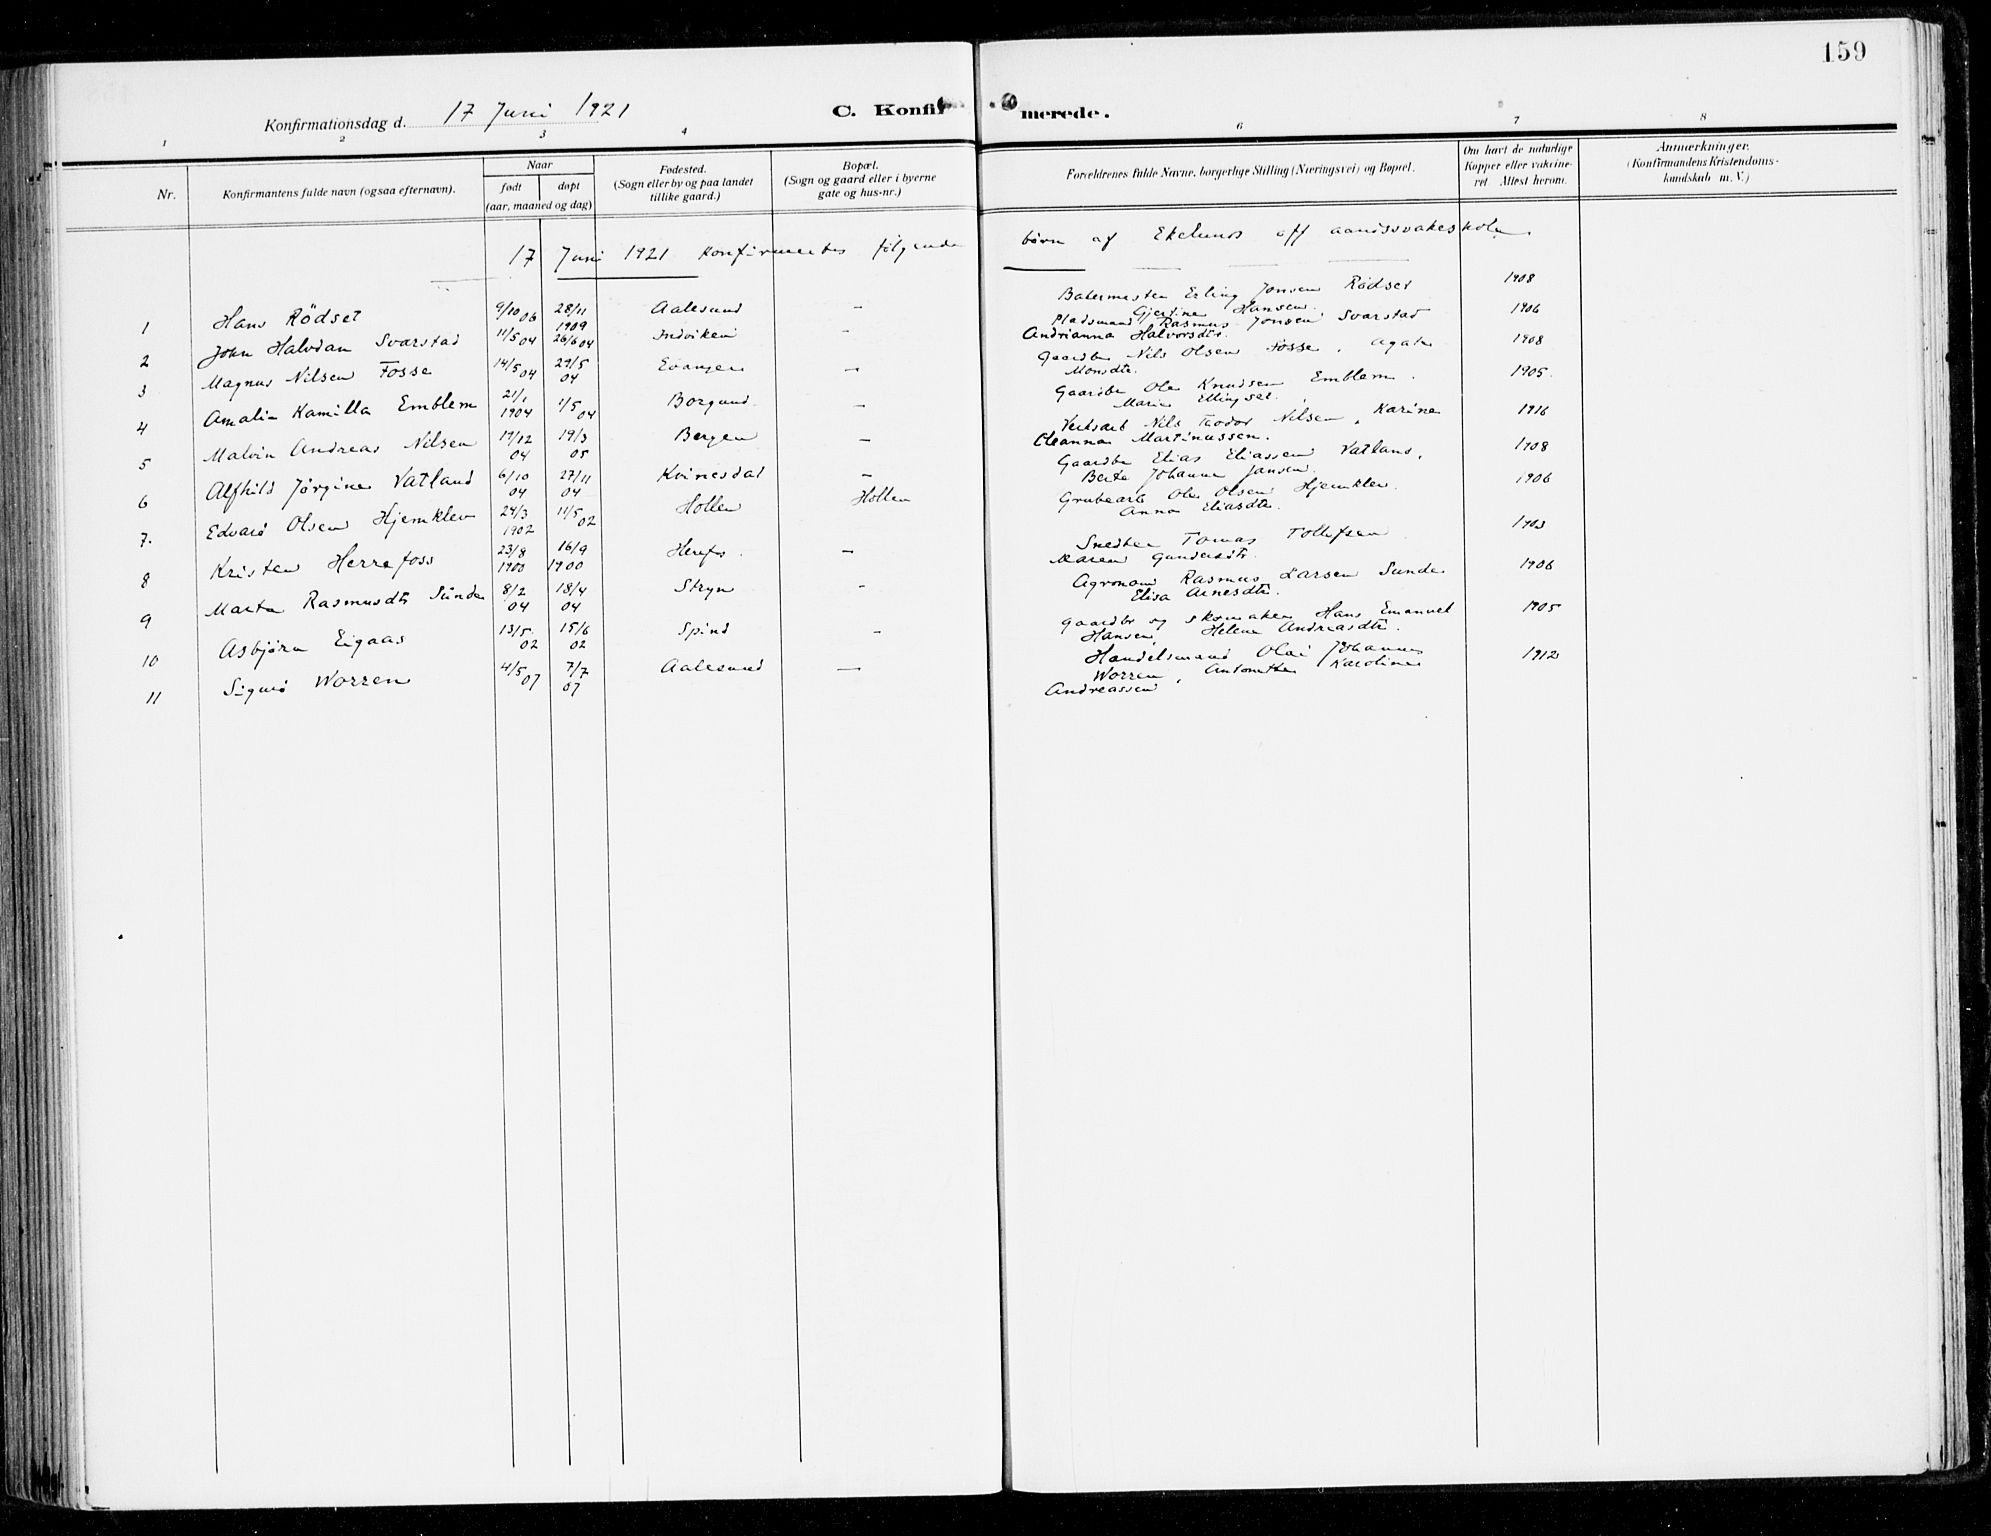 159
Konfirmationsdag d. 17 Juni 1921
C. Konfir merede.
1 2 3 4 6 7 8
Nr.
Konfirmantens fulde navn (ogsaa efternavn).
Naar
født døpt
(aar, maaned og dag)
Fødested.
(Sogn eller by og paa landet
tillike gaard.)
Bopæl.
(Sogn og gaard eller i byerne
gate og hus-nr.)
Forældrenes fulde Navne, borgerlige Stilling (Næringsvei) og Bopæl.
Om havt de naturlige
Kopper eller vaccine-
ret. Attest herom.
Anmærkninger.
(Konfirmandens Kristendoms-
kundskab m. V.)
17 Juni 1921 konfirmertes følgende børn af Ekelunds off aandssvakeskole
1 Hans Rödset 9/10 06 28/11 1909 Aalesund —
Erling Jonsen Rödset 1908
Gjertine Hansen.
2 John Halvdan Svarstad 11/5 04 26/6 04 Indviken —
Pladsmand Rasmus Jonsen Svarstad 1906
Andrianna Halvorsdtr.
3 Magnus Nilsen Fosse 14/5 04 29/5 04 Evanger —
Gaardbr Nils Olsen Fosse, Agate 1908
Monsdtr.
4 Amalie Kamilla Emblem 21/1 1904 1/5 04 Borgund —
Gaardbr Ole Knudsen Emblem. 1905.
Marie Ellingset.
5 Malvin Andreas Nilsen 19/12 04 19/3 05 Bergen —
Verksarb Nils Teodor Nilsen, Karine 1916
Oleanna Martinussen.
6 Alfhild Jørgine Vatland 6/10 04 27/11 04 Kvinesdal —
Gaardbr Elias Eliassen Vatland, 1908
Berte Johanne Jansen.
7. Edvard Olsen Hjemklev 24/3 1902 11/5 02 Hollen Hollen
Grubearb Ole Olsen Hjemklev. 1906
Anna Eliasdtr.
8 Kristen Herrefoss 23/8 1900 16/9 1900 Herefos. —
Snedker Tomas Tollefsen. 1903
Maren Gundersdtr.
9 Marta Rasmusdtr Sunde 8/2 04 18/4 04 Stryn —
Agronom Rasmus Larsen Sunde 1906
Elisa Arnesdtr.
10 Asbjørn Eigaas 13/5 02 15/6 02 Spind —
Gaardbr og skomaker Hans Emanuel 1905
Hansen, Helene Andreasdtr.
11 Sigurd Worren 4/5 07 7/7 07 Aalesund —
Handelsmand Olai Johannes 1912
Worren, Antonette Karoline
Andreassen